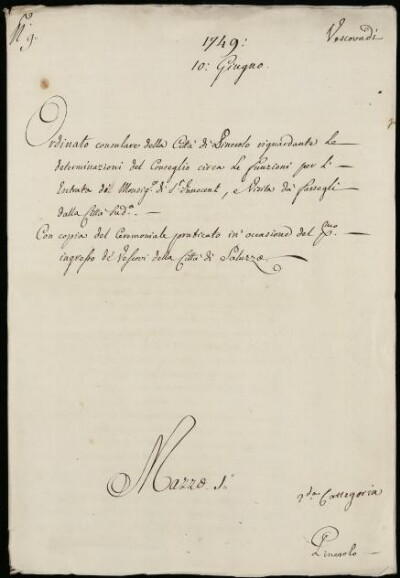 N.º 9.
Vescovadi
1749:
10: Giugno.
Ordinato consulare della Città di Pinerolo riguardante le
determinazioni del Conseglio circa le funzioni per l'
Entrata di Monsig.r di S.t Innocent, e Visita da farsegli
dalla Città sud.a —
Con copia del Ceremoniale pratticato in occasione del P.mo
ingresso de' Vescovi della Città di Saluzzo —
Mazzo 1.º
2.da Cattegoria
Pinerolo —